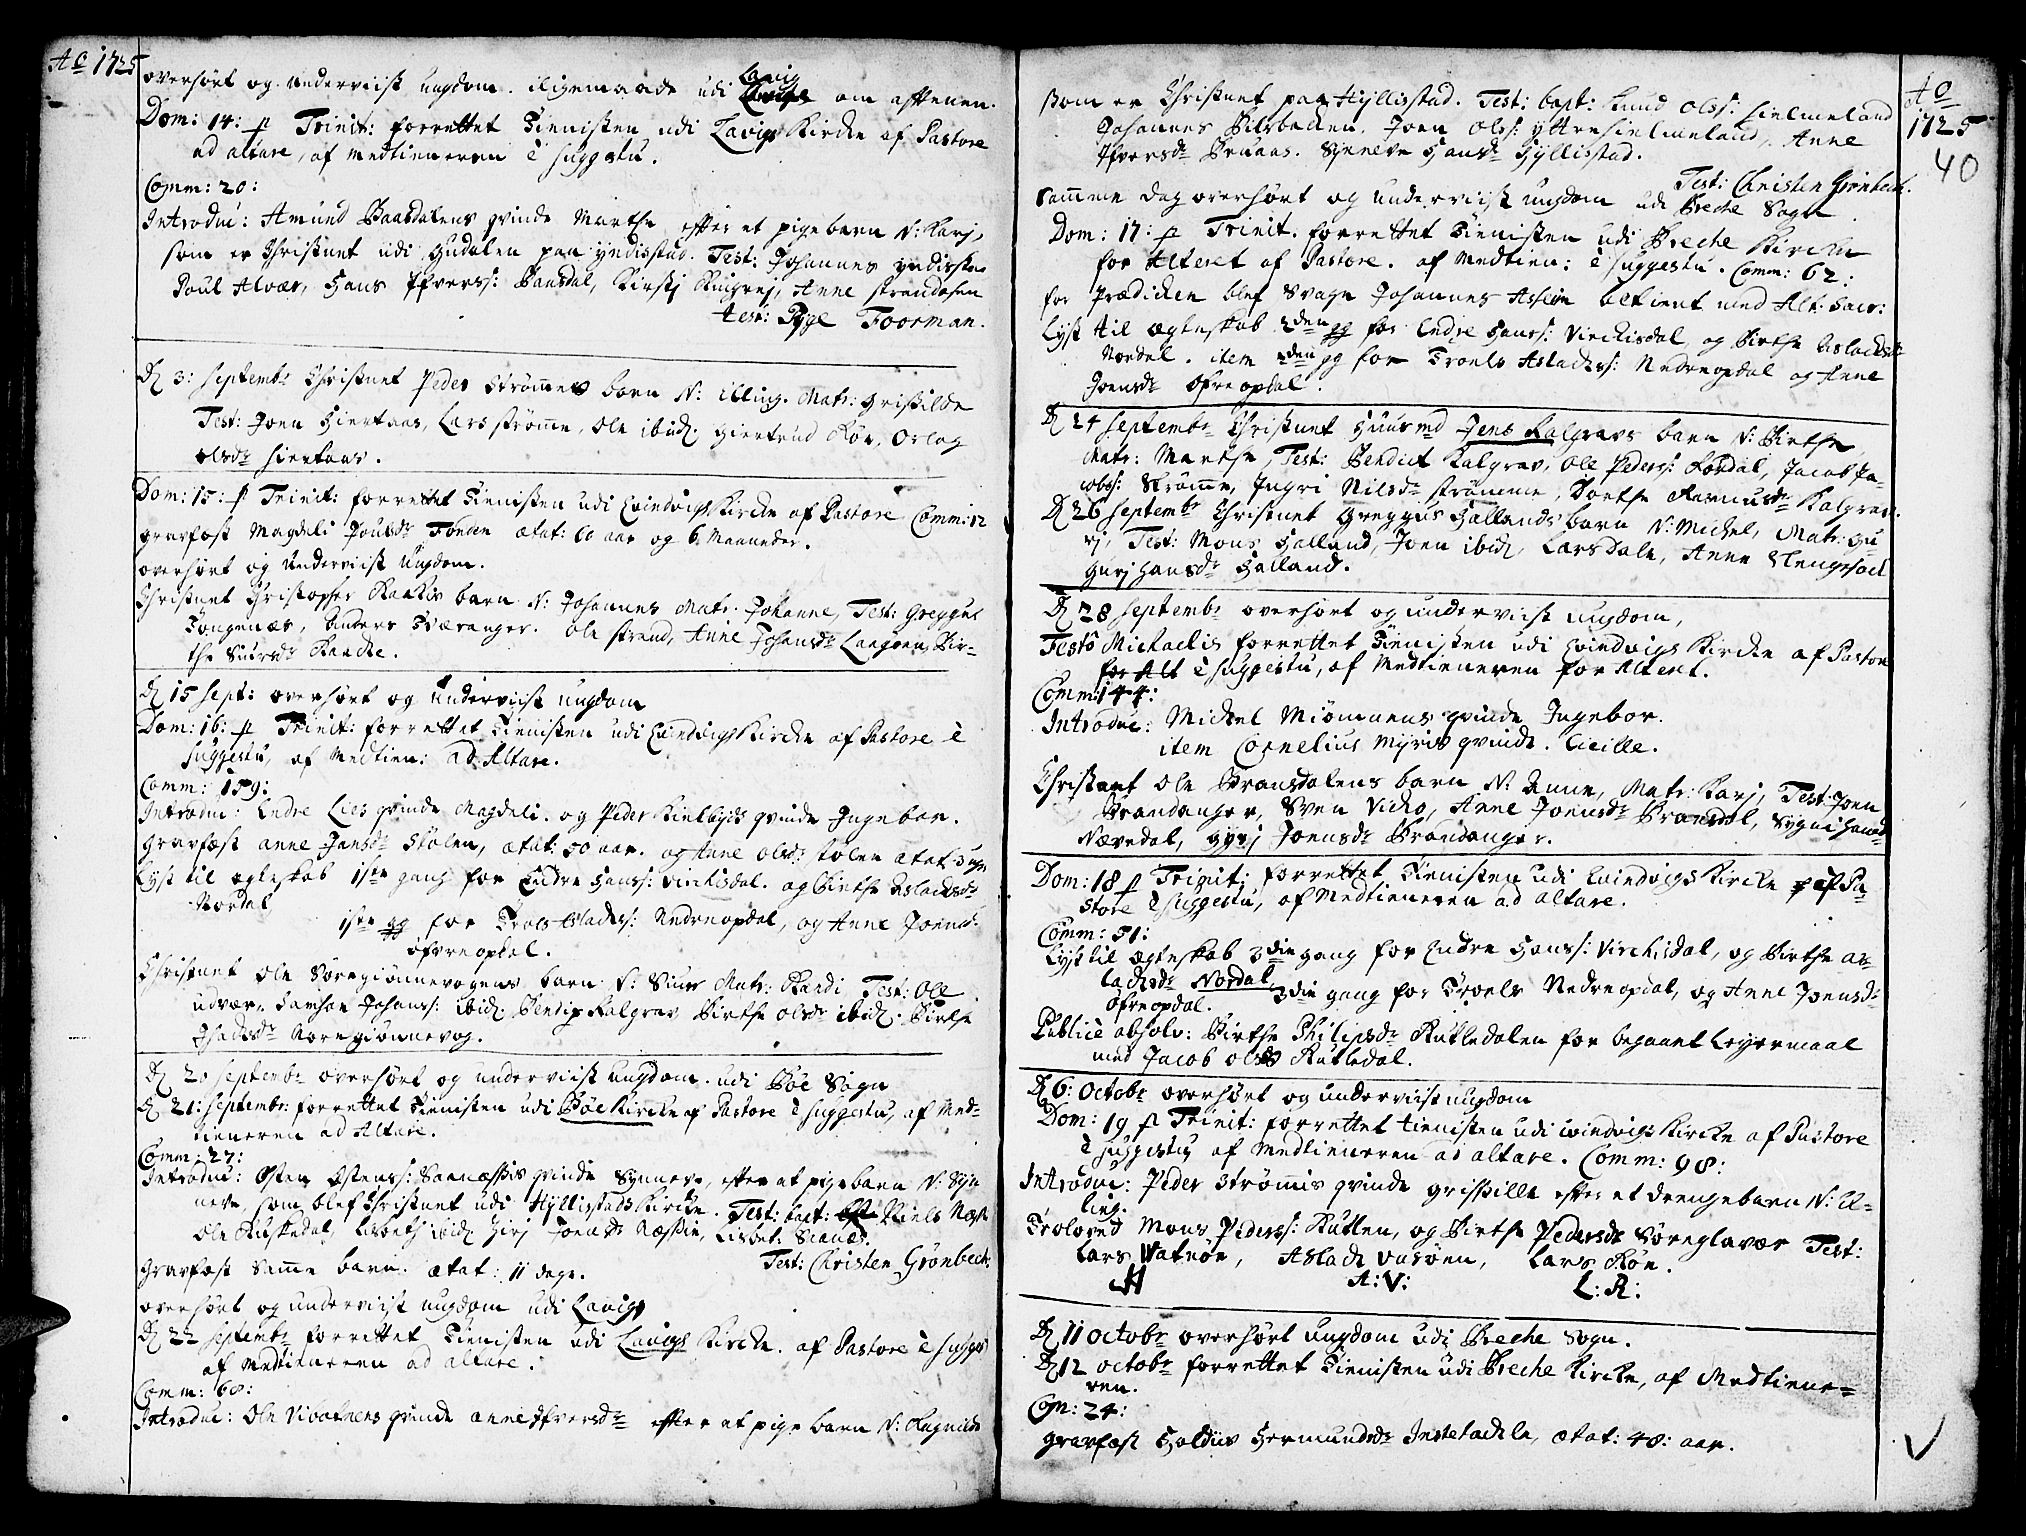 Ao 1725
overhørt og underviist ungdom. iligemaade udi Lavig om afftenen.
Dom: 14: p Trinit: forrettet Tienisten udi Lavigs Kircke af Pastore
ad altare, af Medtieneren è suggestu.
Comm: 20:
Introduc: Amund Baasdalens qvinde Marthe effter et pigebarn N: Karj,
som er Christnet udi Gudalen paa yndisstad. Test: Johannes yndisstad
Poul Alvær, Hans Ifverss: Baasdal, Kirstj Anne Strandosen
test: Pyge Foorman.
D 3: Septembr Christnet Peder Strømmes barn N: Elling. Matr: Grissilde
Test: Joen Hiertaas, Lars Strømme, Ole ibid. Giertrud Røn, Orlog
olsdr hiertaas.
Dom: 15: p Trinit: forrettet Tienisten udi Evindvigs Kircke af Pastore Comm: 12
gravfæst Magdeli Poulsdr Tonden ætat: 60 aar og 6 Maaneder.
overhørt og underviist Ungdom.
Christnet Christopher Raakes barn N: Johannes Matr: Johanne, Test: Greggus
Tongenæs, Anders Tveranger. Ole Strand, Anne Johansdr Langøen, Bir-
the Siursdr Raacke.
D 15 Sept: overhørt og underviist ungdom
Dom: 16: p Trinit: forrettet Tienisten udi Evindvigs Kircke af Pastore è
suggestu, af Medtien: ad Altare.
Comm: 159:
Introduc: Endre Lies qvinde Magdeli. og Peder Kielbyes qvinde Ingebor.
Gravfæst anne Jansdr Stølen, ætat: 50 aar. og Anne olsdr Stølen ætat: 3 ugr
Lyst til egteskab 1ste gang for Endre Hanss: Virckisdal. og Birthe Aslacksdr
Nordal
1ste gg for Troels Aslackss: Nedreopdal, og Anne Joensdr
øfreopdal.
Christnet Ole Søregiønnevogens barn N: Siur Matr: Randi Test: Ole
udvær, Samson Johanss: ibid. Bendix Kalgrav Birthe olsdr ibid. Birthe
Isacksdr Noregiønnevog.
D 20 Septembr overhørt og underviist ungdom. udi Bøe Sogn
D 21: Septembr: forrettet Tienisten udi Bøe Kircke af Pastore è suggestu, af Med-
tieneren ad Altare.
Comm: 27:
Introduc: Østen Østenss: Saanæssis qvinde Synneve, effter et pigebarn N: Syn
neve, som blef Christnet udi Hyllistads Kircke. Test: bapt: Niels Næss
Ole Risnedal, Lisbeth ibid Zirj Joensdr Næssie, Lisbet. Sianæs.
Test: Christen Grønbech.
Gravfæst Samme barn. ætat: 11 dage.
overhørt og underviist ungdom udi Lavigs
D 22 Septembr forrettet Tienisten udi Lavigs Kircke. af Pastore è sugges
af medtieneren ad altare.
Comm: 68:
Introduc: Ole Vivatnens qvinde anne Ifversdr effter et pige barn N: Ragnilde
Ao
1725
40
som er Christnet paa Hyllisstad. Test: bapt: Knud olss: Hielmeland
Johannes Pilsbacken, Joen olss: yttrehielmeland, Anne
Ifversdr Bruaas. Synneve Hansdr Hyllisstad.
Test: Christen Grønbech.
Samme Dag overhørt og underviist ungdom udi Breche Sogn
Dom: 17: p Trinit. forrettet Tienisten udi Breche Kircke
for Alteret af Pastore. af Medtien: è suggestu. Comm: 62:
for Prædicken blef Svage Johannes Asheim betient med Alt. Sacr:
Lyst til egteskab 2den gg for Endre Hanss: Virckisdal, og Birthe Aslacksdr
Nordal. item 2den gg for Troels Aslackss: Nedreopdal og Anne
Joensdr øfreopdal.
D 24 Septembr Christnet Huusmd Jens Kalgravs barn N: Birthe,
Matr: Marthe, Test: Bendict Kalgrav, Ole Pederss: Kordal, Jacob Ja-
cobss: Strømme, Ingri Nilsdr Strømme, Dorthe Rasmusdr Kalgrav.
D 26 Septembr Christnet Greggus Hallands barn N: Michel, Matr: Gu
rj, Test: Mons Halland, Joen ibid, Lars Dale, Anne Slengesoel
Gurj hansdr Halland.
D 28 Septembr overhørt og underviist ungdom,
Festo Michaelis forrettet Tienisten udi Evindvigs Kircke af Pastore
for Alt è suggestu, af Medtieneren for Alteret.
Comm: 144:
Introduc: Mickel Miømnens qvinde Ingebor.
item Cornelius Myris qvinde. Cicille.
Christnet Ole Bransdalens barn N: Anne, Matr: Karj, Test: Joen
Brandanger, Sven Vicko, Anne Joensdr Bransdal, Sygni Hansdr
Nævedal, Gyrj Joensdr Brandanger.
Dom: 18 p Trinit: forrettet Tienisten udi Evindvigs Kircke af Pa-
store è suggestu, af Medtieneren ad altare.
Comm: 51:
Lyst til egteskab 3die gang for Endre Hanss: Virchisdal, og Birthe As-
lacksdr Nordal, 3die gang for Troels Nedreopdal, og Anne Joensdr
Øfreopdal.
Publicè absolv: Birthe Philipsdr Rutledalen for begaaet Leyermaal
med Jacob olss Rutledal.
D 6: Octobr overhørt og underviist ungdom
Dom: 19 p Trinit: forrettet tienisten udi Evindvigs Kircke af Pastore
è suggestu af Medtieneren ad altare. Comm: 98:
Introduc: Peder Strømmis qvinde Grissille effter et drengebarn N: El-
ling.
Trolovet Mons Pederss: Rutlen, og Birthe Pedersdr Søreglavær Test:
Lars Vatnøe, Aslack Vasøen, Lars Røn.
A: V: L: R:
D 11 Octobr overhørt ungdom udi Breche Sogn.
D 12 octobr forrettet Tienisten udi Breche Kircke, af Medtiene-
ren.
Com: 24:
Gravfæst Holdus Hermundsdr Instetackle, ætat: 48: aar.